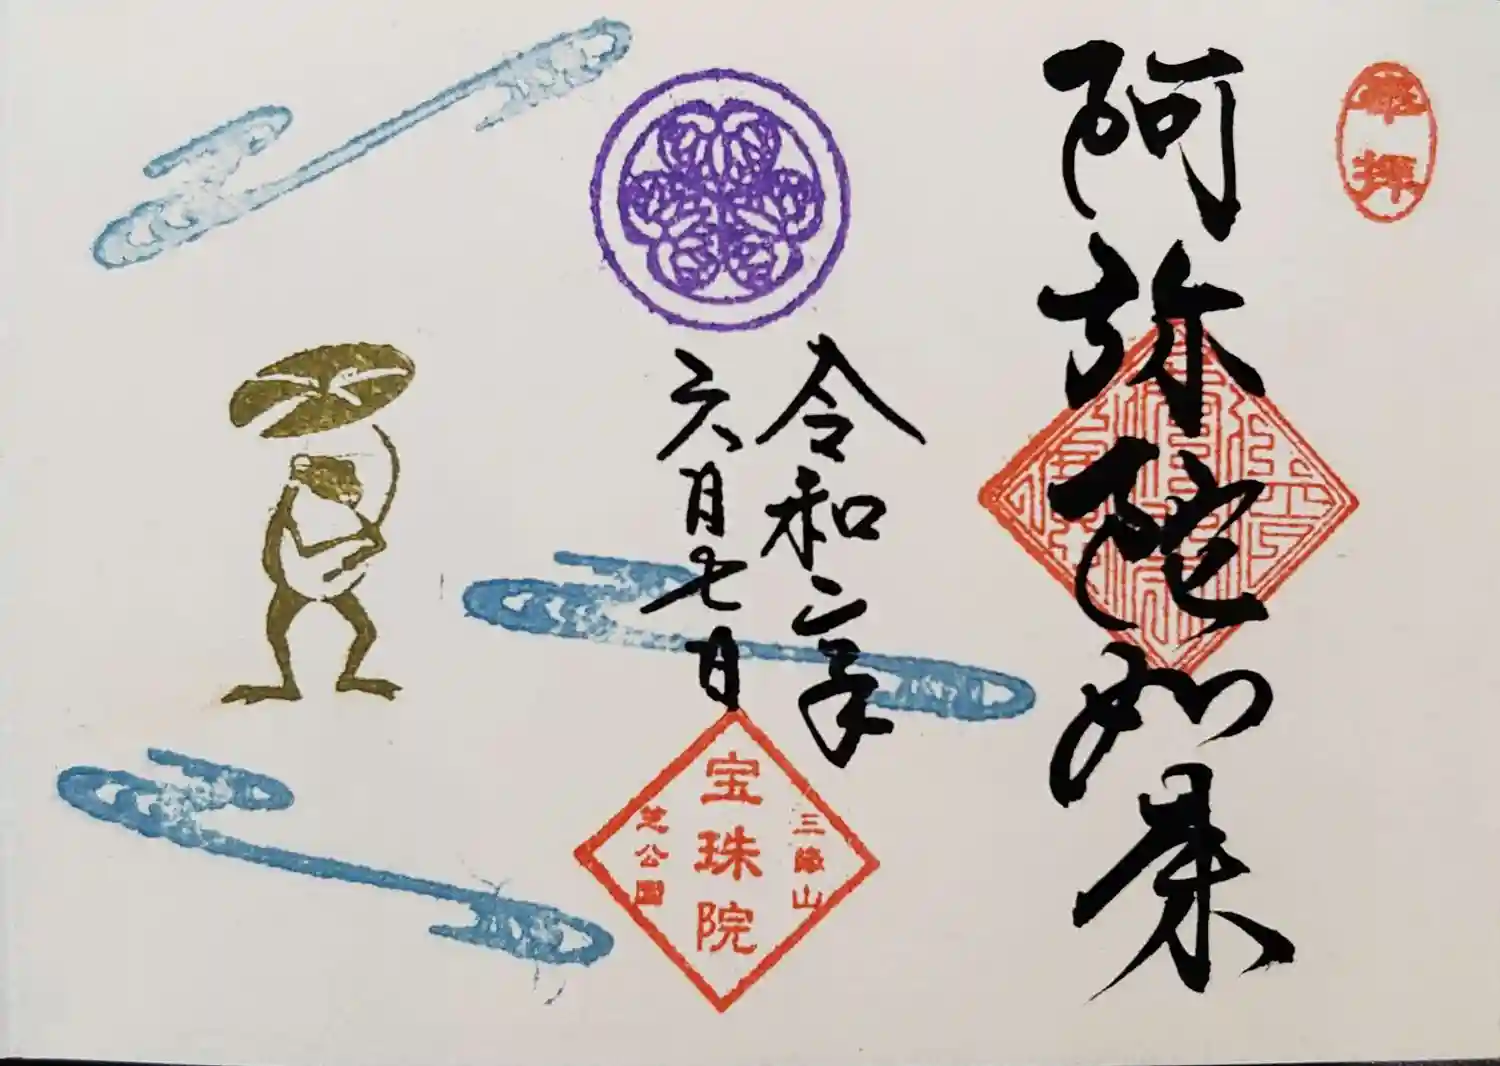 奉拝
阿弥陀如来
令和二年
六月七日
三縁山
宝珠院
芝公園